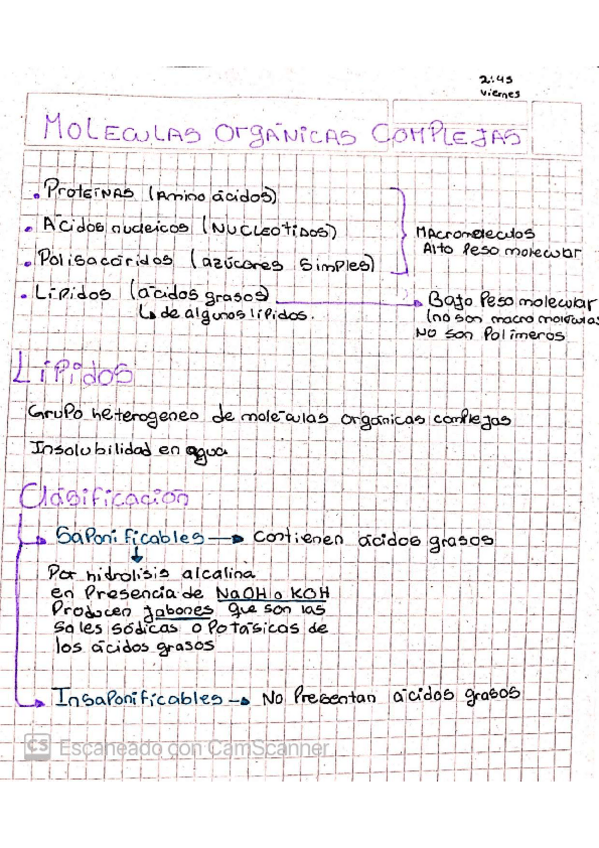 2:45
viernes
MOLECULAS ORGÁNICAS COMPLEJAS
• PROTEÍNAS (Amino ácidos)
• Ácidos nucleicos (NUCLEOTIDOS)
• Polisacáridos (azúcares simples)
Macromoleculas
Alto Peso molecular
• Lípidos (ácidos grasos)
↳ de algunos lípidos.
Bajo Peso molecular
(no son macro moléculas
NO son Polímeros
Lípidos
Grupo heterogeneo de moléculas orgánicas complejas
Insolubilidad en agua
Clasificación
Saponificables → Contienen ácidos grasos
Por hidrolisis alcalina
en Presencia de NaOH o KOH
Producen jabones que son las
Sales sódicas o Potásicas de
los ácidos grasos
Insaponificables → No Presentan ácidos grasos
CS Escaneado con CamScanner